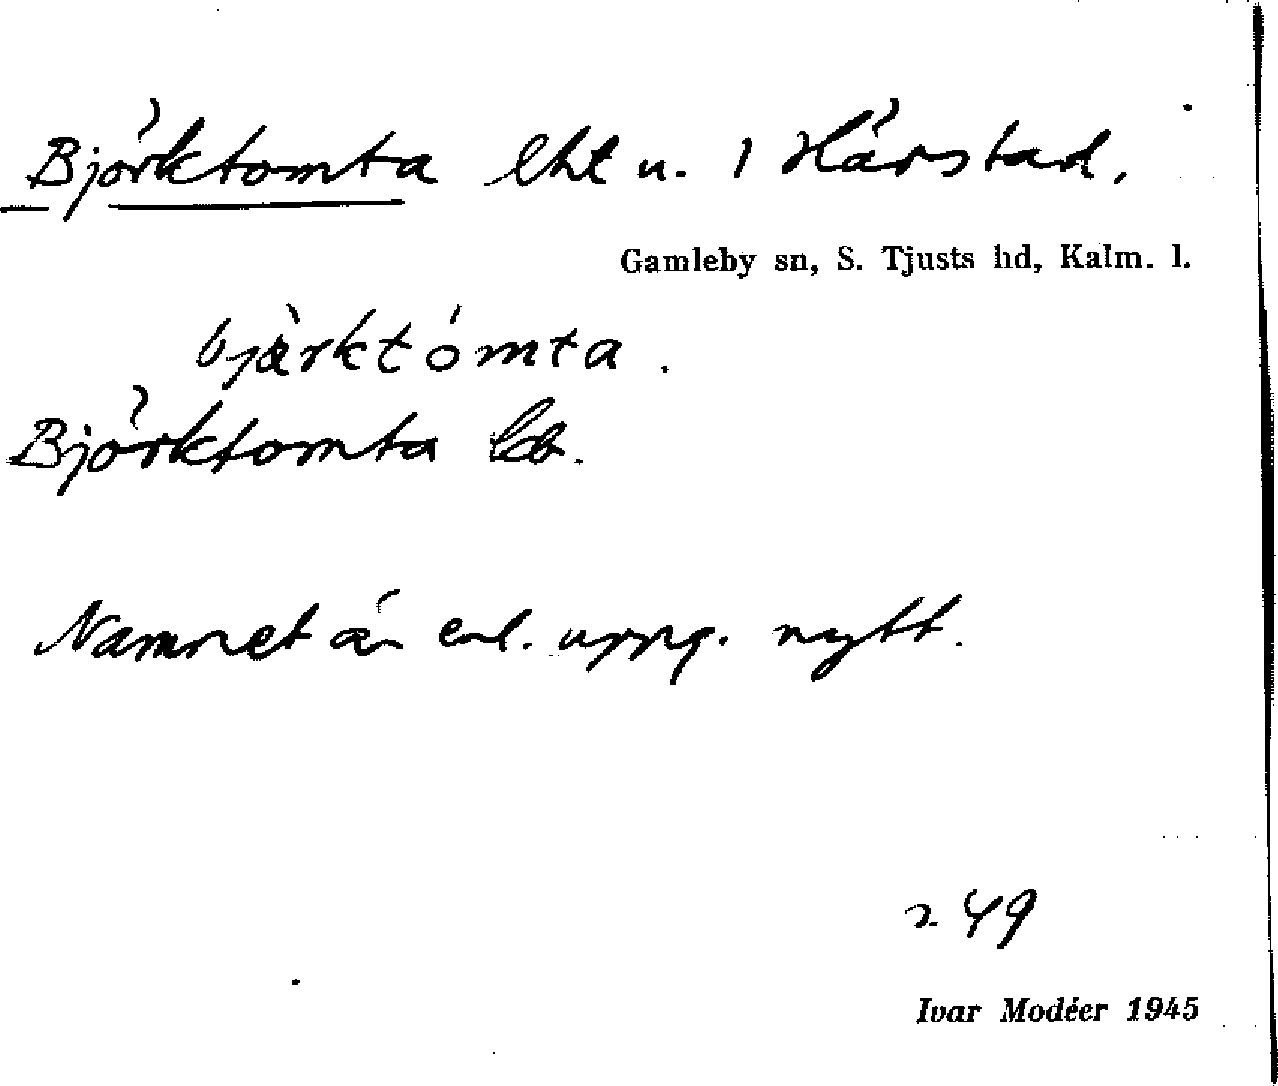 Björktomta lht u. 1 Härstad.
Gamleby sn, S. Tjusts hd, Kalm. l.
bjàrktómta.
Björktomta
Namnet är enl. uppg. nytt.
249
Ivar Modéer 1945